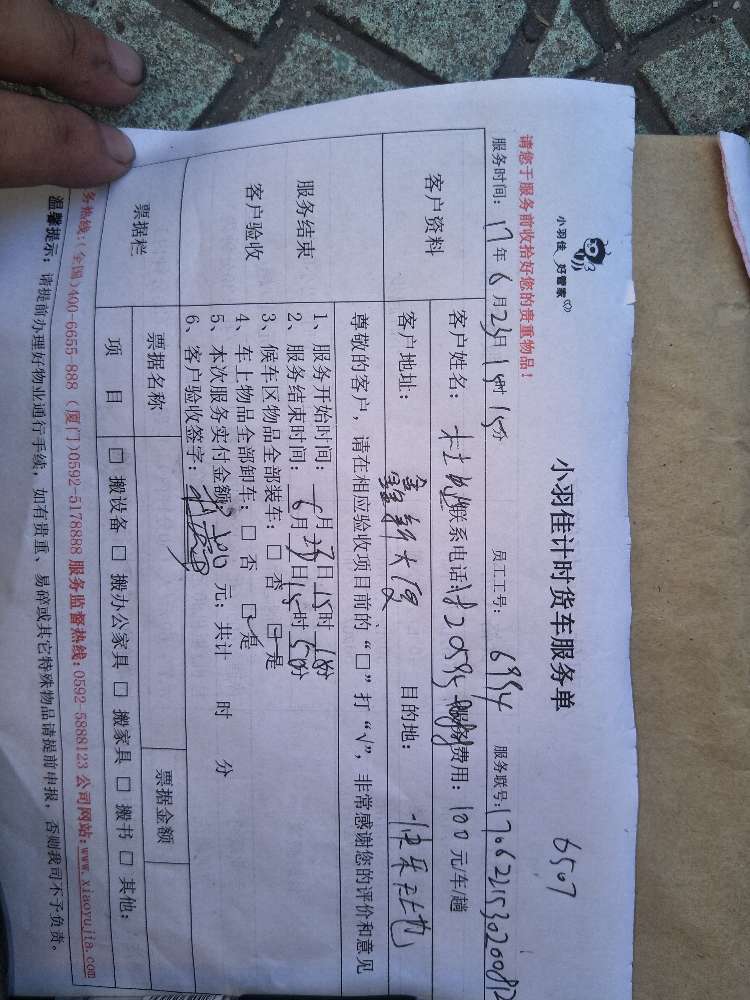 小羽佳 好管家
小羽佳计时货车服务单
6507
请您于服务前收拾好您的贵重物品！
服务时间：17年6月23日 时15分 员工工号：6954 服务联号：170622153020082
客户资料
客户姓名： 联系电话 服务费用：100元/车/趟
客户地址：鑫新大厦 目的地：快乐社
尊敬的客户，请在相应验收项目前的“□”打“√”，非常感谢您的评价和意见
服务结束
客户验收
1、服务开始时间：6月23日15时 分
2、服务结束时间：6月23日15时50分
3、候车区物品全部装车：□ 否 □ 是
4、车上物品全部卸车：□ 否 □ 是
5、本次服务实付金额：100元；共计 时 分
6、客户验收签字：
票据栏
票据名称 票据金额
项 目 □ 搬设备 □ 搬办公家具 □ 搬家具 □ 搬书 □ 其他：
务热线：(全国)400-6655-888 (厦门)0592-5178888 服务监督热线：0592-5888123 公司网站：www.xiaoyujia.com
温馨提示：请提前办理好物业通行手续，如有贵重、易碎或其它特殊物品请提前申报，否则我司不予负责。